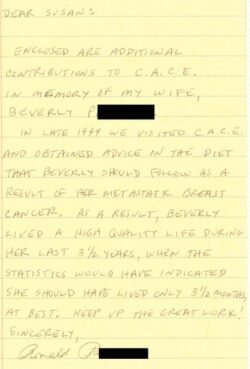 DEAR SUSAN:
ENCLOSED ARE ADDITIONAL
CONTRIBUTIONS TO C.A.C.E.
IN MEMORY OF MY WIFE,
BEVERLY P
IN LATE 1999 WE VISITED C.A.C.E.
AND OBTAINED ADVICE ON THE DIET
THAT BEVERLY SHOULD FOLLOW AS A
RESULT OF HER METASTATIC BREAST
CANCER. AS A RESULT, BEVERLY
LIVED A HIGH QUALITY LIFE DURING
HER LAST 3 1/2 YEARS, WHEN THE
STATISTICS WOULD HAVE INDICATED
SHE SHOULD HAVE LIVED ONLY 3 1/2 MONTHS,
AT BEST. KEEP UP THE GREAT WORK!
SINCERELY,
Ronald